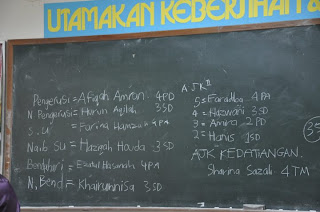 UTAMAKAN KEBERSIHAN &
Pengerusi = Afiqah Amran 4PD
N. Pengerusi = Harun Aqilah 3SD
S.U = Farina Hamzah 4PA
Naib Su = Hazqah Houda 3SD
Bendahari = Ezatul Hasinah 4PA
N. Bend = Khairunnisa 3SD
AJK
5 = Faradiba 4PA
4 = Hazwani 3SD
3 = Amira 2PD
2 = Hanis 1SD
AJK KEDATANGAN
Sharina Sazali 4TM